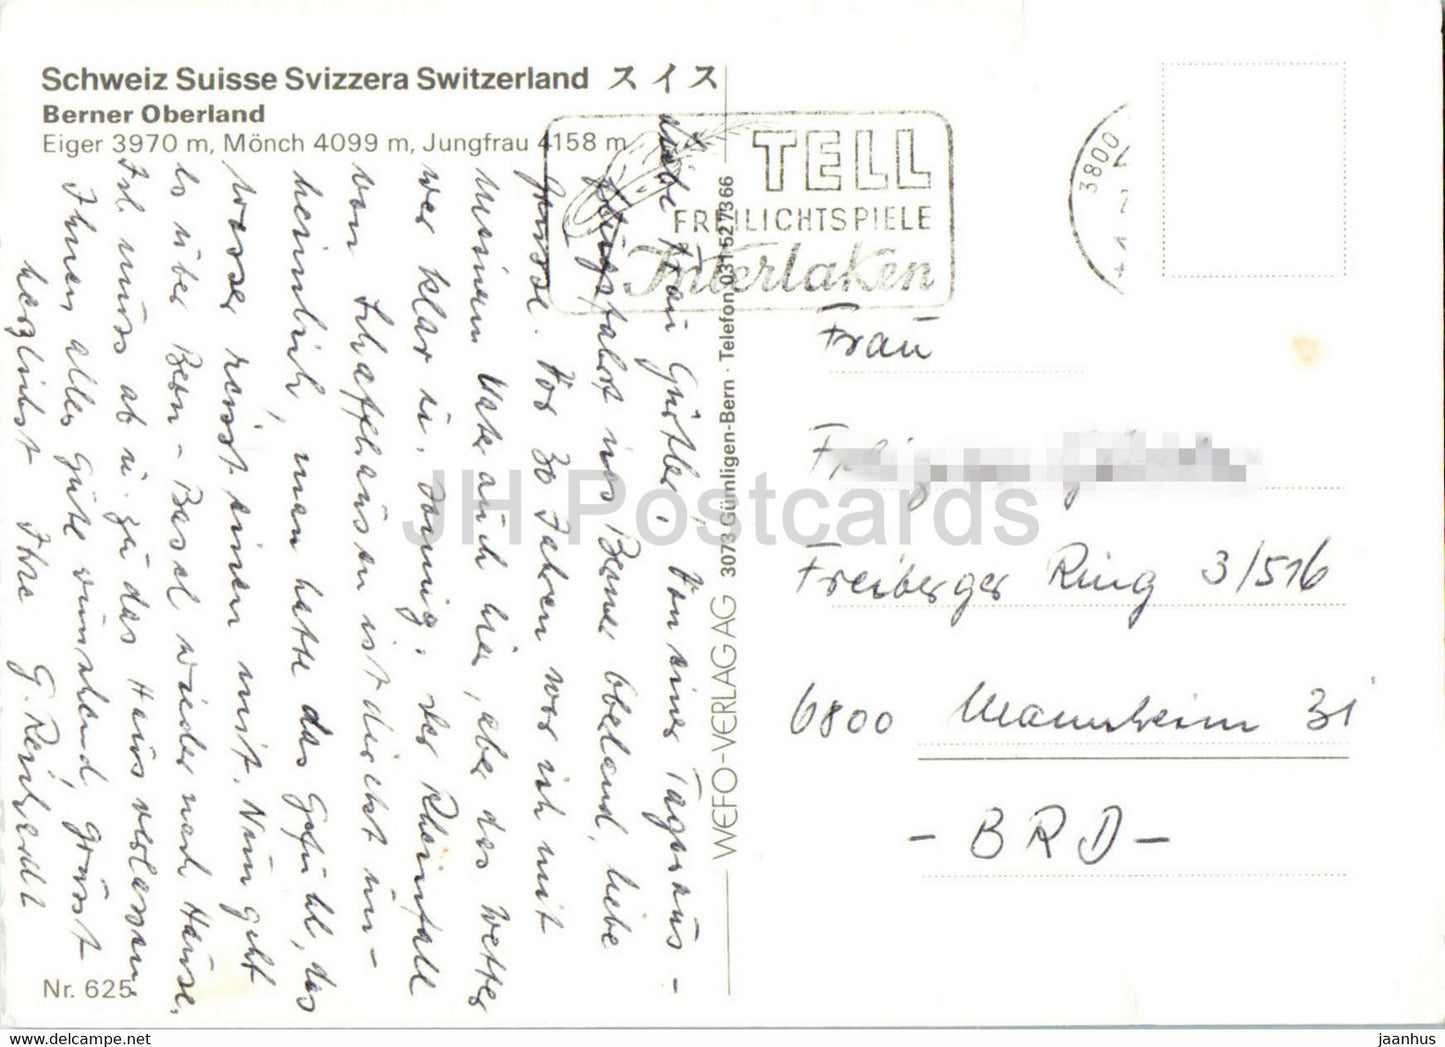 Schweiz Suisse Svizzera Switzerland スイス
Berner Oberland
Eiger 3970 m, Mönch 4099 m, Jungfrau 4158 m
TELL
FREILICHTSPIELE
Interlaken
3800
Liebe Frau Gürtler, Von einer Tagesaus-
flugsfahrt ins Berner Oberland, liebe
Grüsse. Vor 30 Jahren war ich mit
meinem Vater auch hier, aber das Wetter
war klar u. sonnig. Der Rheinfall
von Schaffhausen ist direkt un-
heimlich, man hatte das Gefühl, das
Wasser reisst einen mit. Nun geht
es über Bern - Basel wieder nach Hause.
Ich muss ab u. zu das Haus verlassen.
Ihnen alles Gute wünschend, grüsst
herzlichst Ihre G. Reinhardt
WEFO-VERLAG AG 3073 Gümligen-Bern · Telefon 031 527366
Frau
Freiberger Ring 3/516
6800 Mannheim 31
- BRD -
Nr. 625
JH Postcards
jaanhus